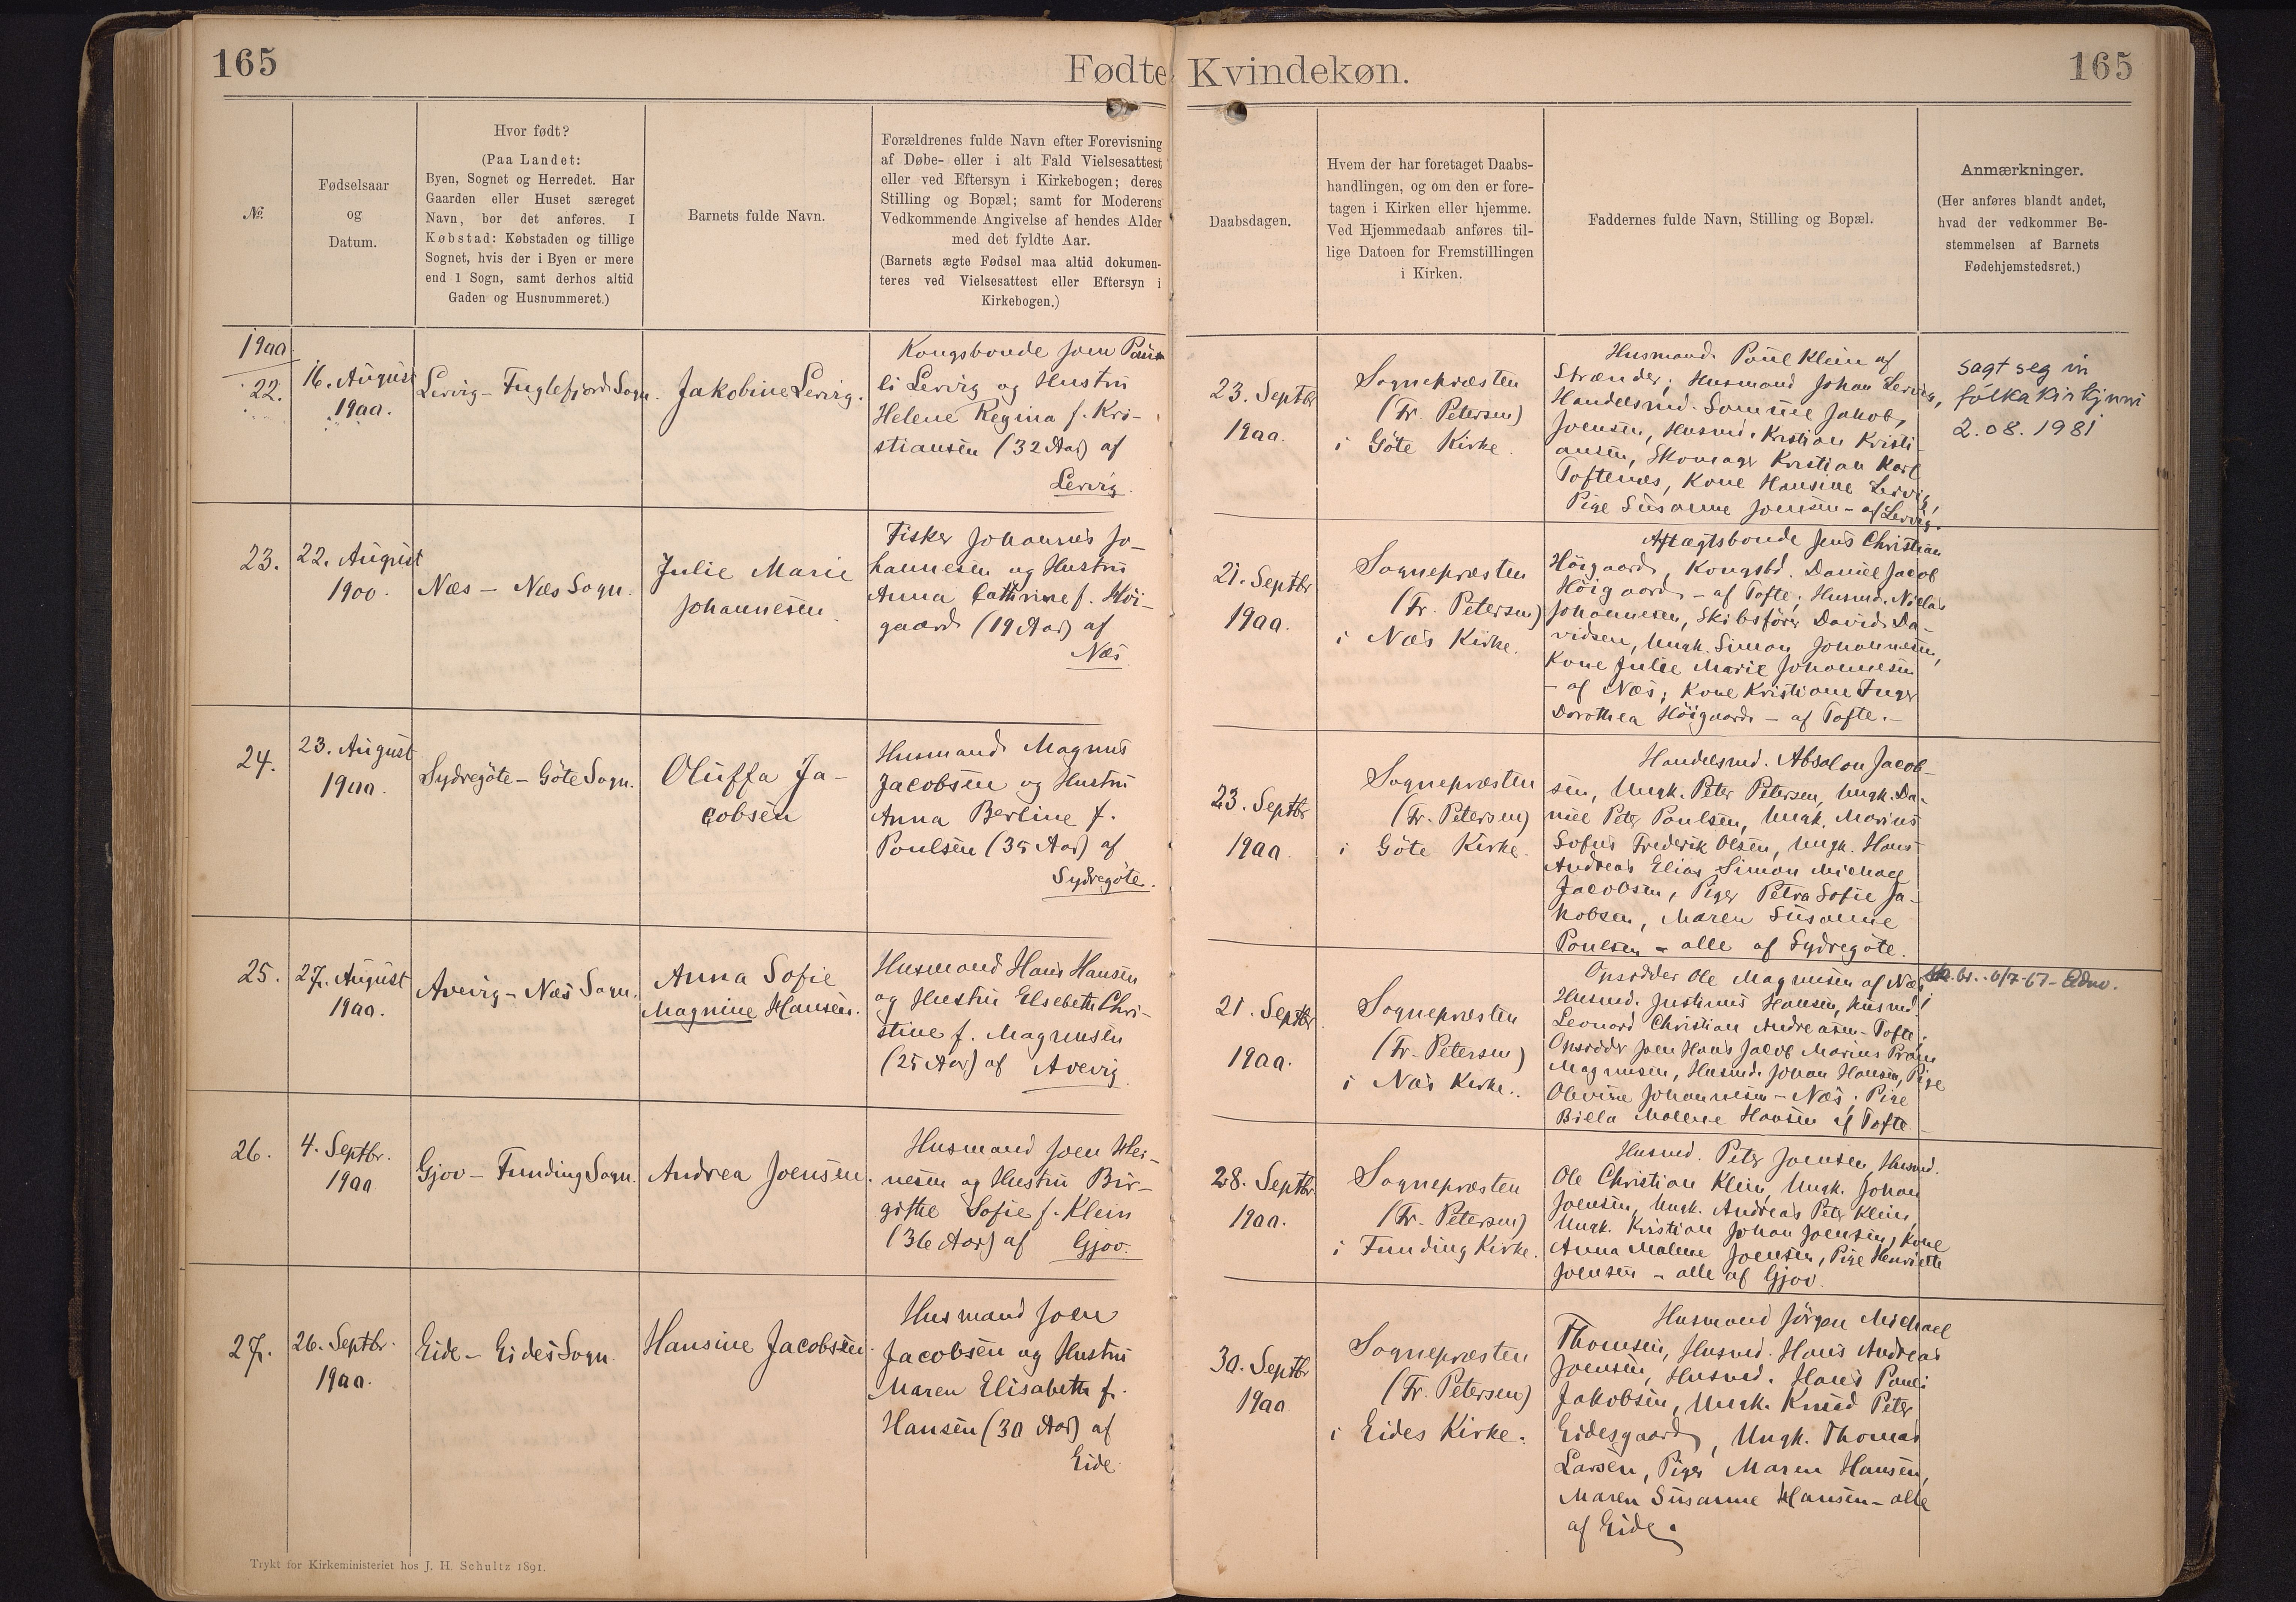 165
Fødte Kvindekøn.
165
№.
Fødselsaar
og
Datum.
Hvor født?
(Paa Landet:
Byen, Sognet og Herredet. Har
Gaarden eller Huset særeget
Navn, bør det anføres. I
Købstad: Købstaden og tillige
Sognet, hvis der i Byen er mere
end 1 Sogn, samt derhos altid
Gaden og Husnummeret.)
Barnets fulde Navn.
Forældrenes fulde Navn efter Forevisning
af Døbe- eller i alt Fald Vielsesattest
eller ved Eftersyn i Kirkebogen; deres
Stilling og Bopæl; samt for Moderens
Vedkommende Angivelse af hendes Alder
med det fyldte Aar.
(Barnets ægte Fødsel maa altid dokumen-
teres ved Vielsesattest eller Eftersyn i
Kirkebogen.)
Daabsdagen.
Hvem der har foretaget Daabs-
handlingen, og om den er fore-
tagen i Kirken eller hjemme.
Ved Hjemmedaab anføres til-
lige Datoen for Fremstillingen
i Kirken.
Faddernes fulde Navn, Stilling og Bopæl.
Anmærkninger.
(Her anføres blandt andet,
hvad der vedkommer Be-
stemmelsen af Barnets
Fødehjemstedsret.)
1900
22.
16. August
1900.
Lervig - Fuglefjord Sogn.
Jakobine Lervig.
Kongsbonde Joen
li Lervig og Hustru
Helene Regina f. Kri-
stiansen (32 Aar) af
Lervig.
23. Septbr
1900.
Sognepræsten
(Fr. Petersen)
i Göte Kirke.
Husmand Poul Klein af
Strænder; Husmand Johan Lervig,
Handelsmd. Somme Jakob,
Joensen, Husmd. Kristian Kristi-
ansen, Skomager Kristian Karl
Toftenæs, Kone Hansine Lervig,
Pige Susanne Joensen - af Lervig.
sagt seg úr
fólkakirkjuni
2.08.1981
23.
22. August
1900.
Næs - Næs Sogn.
Julie Marie
Johannesen.
Fisker Johannes Jo-
hannesen og Hustru
Anna Cathrine f. Höi-
gaard (19 Aar) af
Næs
21. Septbr
1900.
Sognepræsten
(Fr. Petersen)
i Næs Kirke.
Aftægtsbonde Jens Christian
Höigaard, Kongsbd. Daniel Jacob
Höigaard - af Tofte; Husmd. Niclas
Johannesen, Skibsfører David Da-
vidsen, Ungk. Simon Johannesen,
Kone Julie Marie Johannesen
- af Næs; Kone Kristiane Inger
Dorothea Höigaard - af Tofte. -
24.
23. August
1900.
Sydregöte - Göte Sogn.
Oluffa Ja-
cobsen
Husmand Magnus
Jacobsen og Hustru
Anna Berline f.
Poulsen (35 Aar) af
Sydregöte.
23. Septbr
1900.
Sognepræsten
(Fr. Petersen)
i Göte Kirke.
Handelsmd. Absalon Jacob-
sen, Ungk. Peter Petersen, Ungk. Da-
niel Peter Poulsen, Ungk. Marius
Sofus Frederik Olsen, Ungk. Hans
Andreas Elias Simon Michael
Jacobsen, Piger Petra Sofie Ja-
kobsen, Maren Susanne
Poulsen - alle af Sydregöte.
25.
27. August
1900.
Avevig - Næs Sogn.
Anna Sofie
Magnine Hansen.
Husmand Hans Hansen
og Hustru Elsebeth Chri-
stine f. Magnusen
(25 Aar) af Avevig
21. Septbr.
1900.
Sognepræsten
(Fr. Petersen)
i Næs Kirke..
Opsidder Ole Magnusen af Næs;
Husmd. Justinus Hansen, Husmd.
Leonard Christian Andreasen - Tofte;
Opsidder Joen Hans Jacob Marius
Magnusen, Husmd. Johan Hansen, Pige
Olevine Johannesen - Næs; Pige
Billa Malene Hansen af Tofte
6/7-67
26.
4. Septbr.
1900
Gjov - Funding Sogn.
Andrea Joensen.
Husmand Joen Hei-
nesen og Hustru Bir-
githe Sofie f. Klein
(36 Aar) af Gjov.
28. Septbr
1900.
Sognepræsten
(Fr. Petersen)
i Funding Kirke.
Husmd. Peter Joensen, Husmd.
Ole Christian Klein, Ungk. Johan
Joensen, Ungk. Andreas Peter Klein,
Ungk. Kristian Johan Joensen, Kone
Anna Malene Joensen, Pige Henriette
Joensen - alle af Gjov.
27.
26. Septbr.
1900.
Eide - Eides Sogn
Hansine Jacobsen.
Husmand Joen
Jacobsen og Hustru
Maren Elisabeth f.
Hansen (30 Aar) af
Eide.
30. Septbr
1900
Sognepræsten
(Fr. Petersen)
i Eides Kirke.
Husmand Jörgen Michael
Thomsen, Husmd. Hans Andreas
Joensen, Husmd. Hans Pauli
Jakobsen, Ungk. Knud Peter
Eidesgaard, Ungk. Thomas
Larsen, Piger Maren Hansen,
Maren Susanne Hansen - alle
af Eide.
Trykt for Kirkeministeriet hos J. H. Schultz 1891.